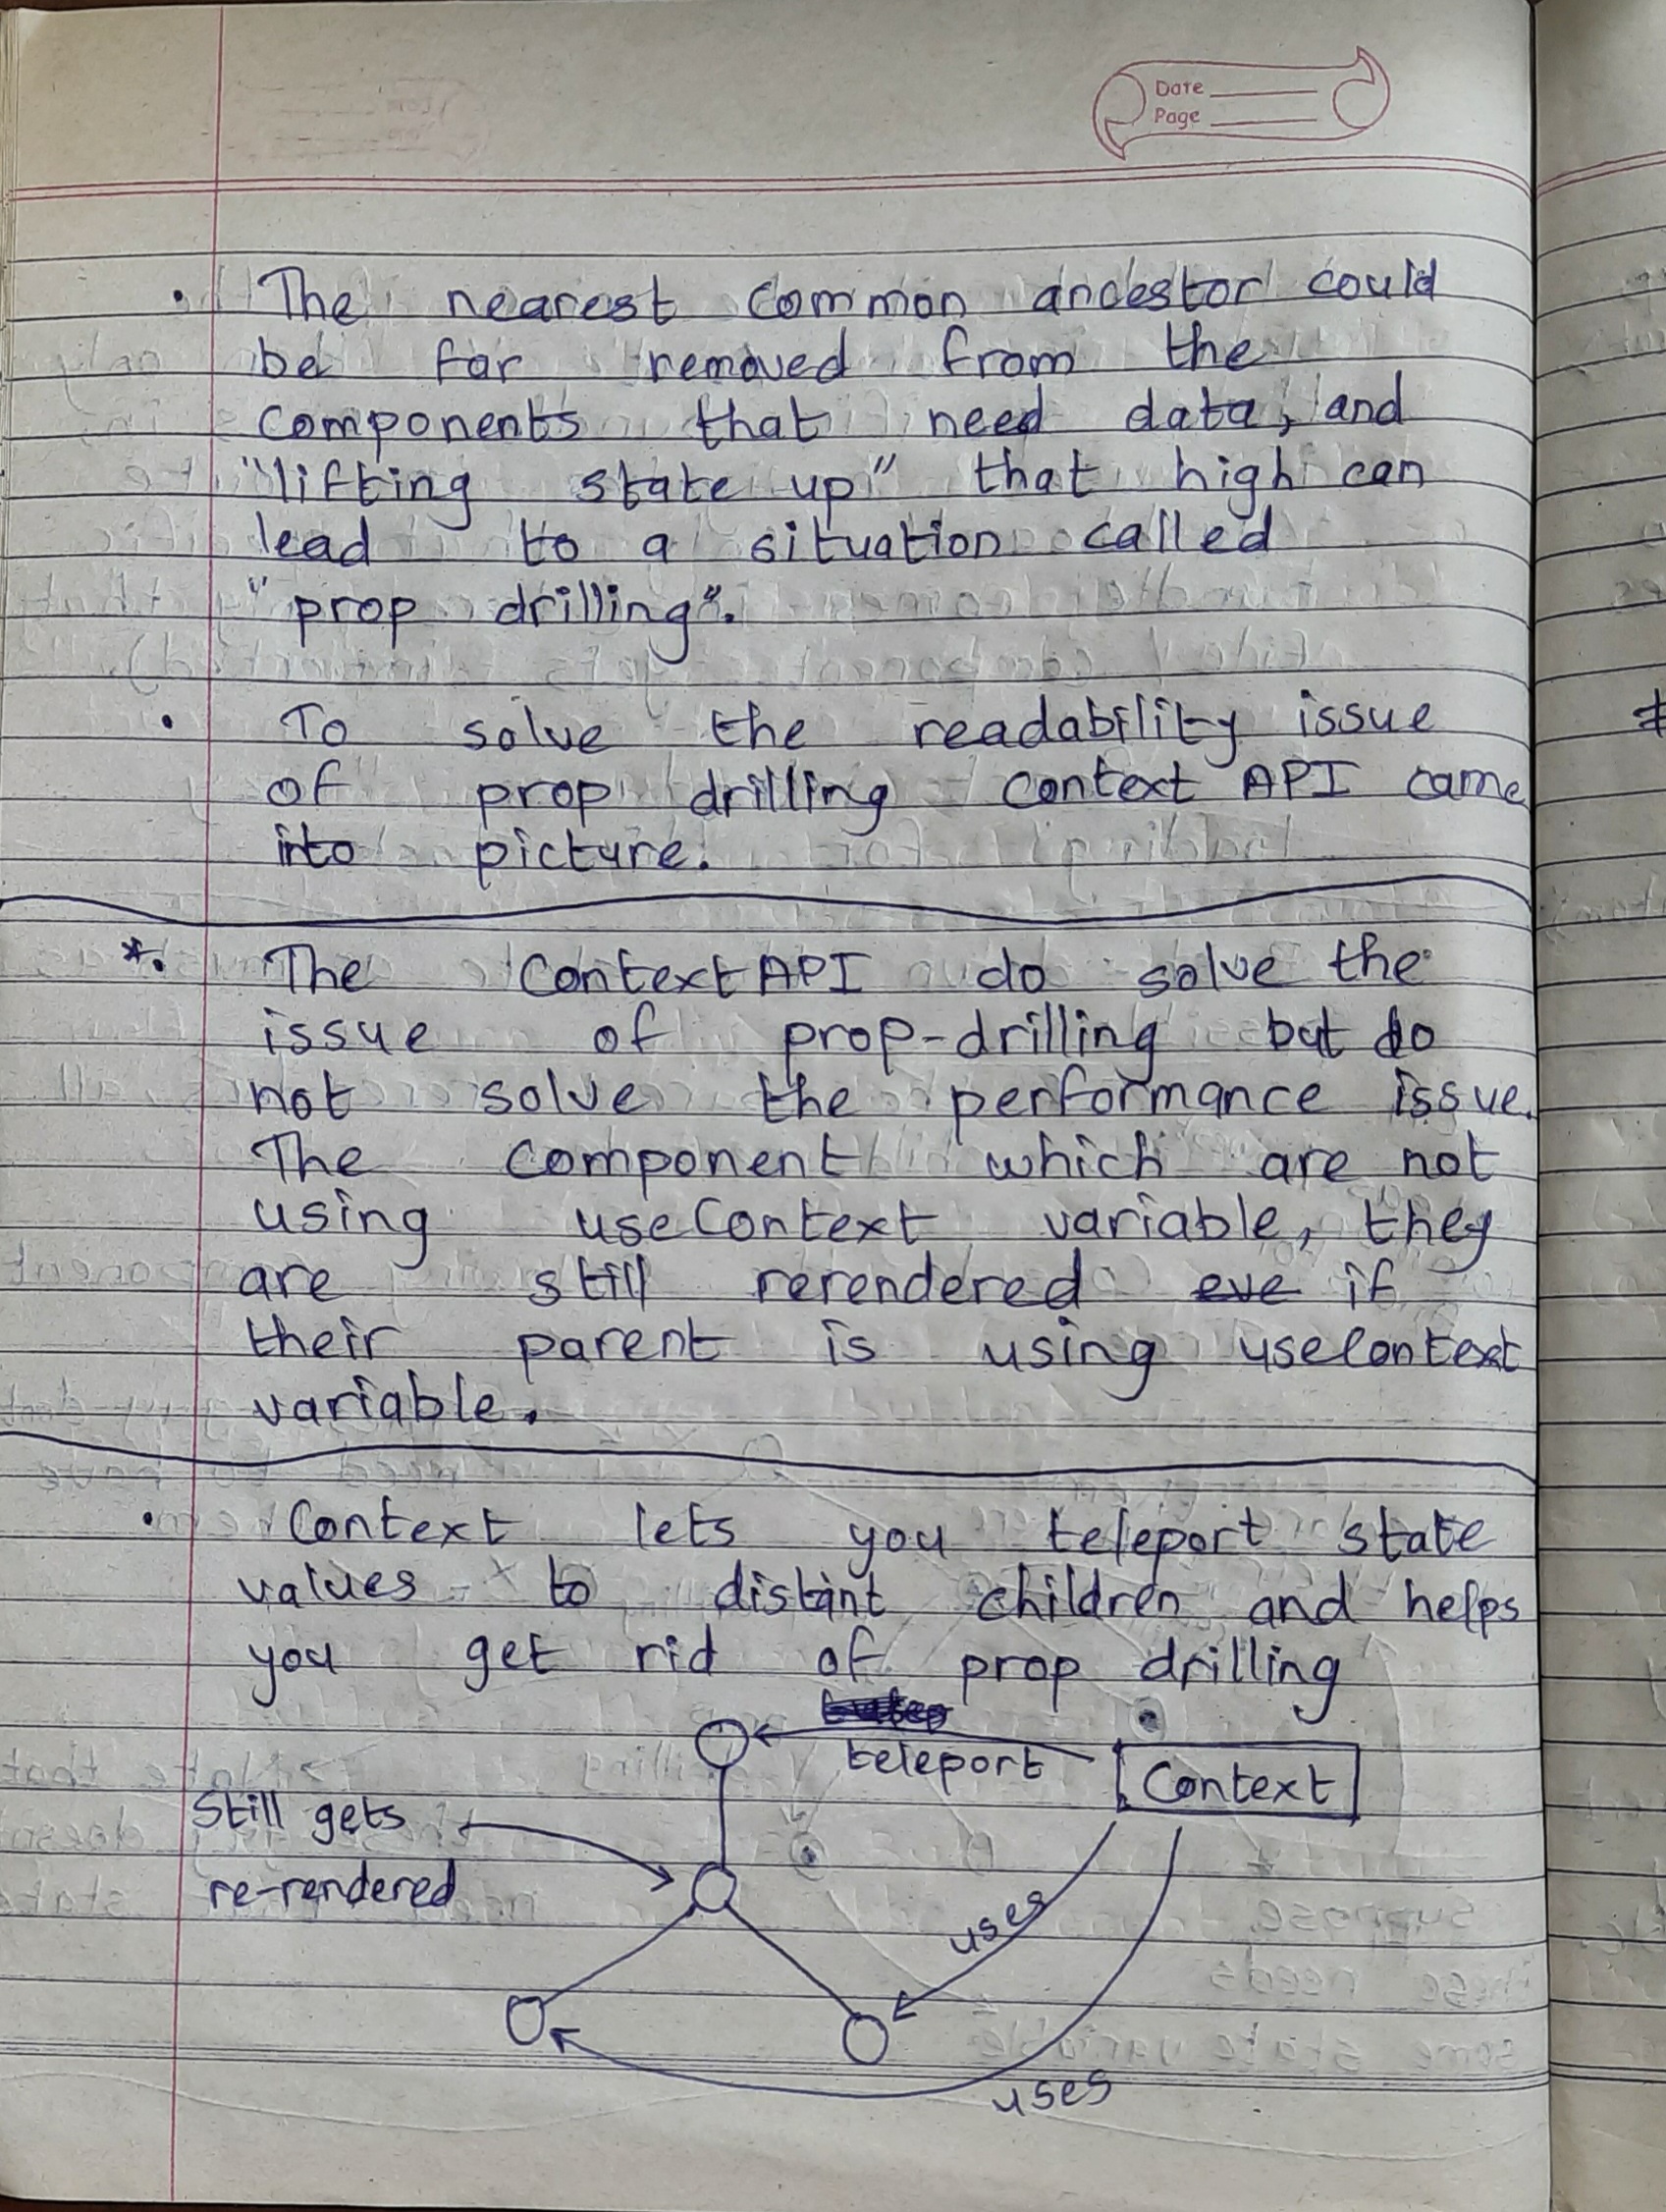 Date
Page
• The nearest common ancestor could
be far removed from the
components that need data, and
"lifting state up" that high can
lead to a situation called
"prop drilling".
• To solve the readability issue
of prop drilling context API came
into picture.
*. The Context API do solve the
issue of prop-drilling but do
not solve the performance issue.
The component which are not
using useContext variable, they
are still rerendered eve if
their parent is using useContext
variable.
• Context lets you teleport state
values to distant children and helps
you get rid of prop drilling
teleport
Context
Still gets
re-rendered
uses
uses